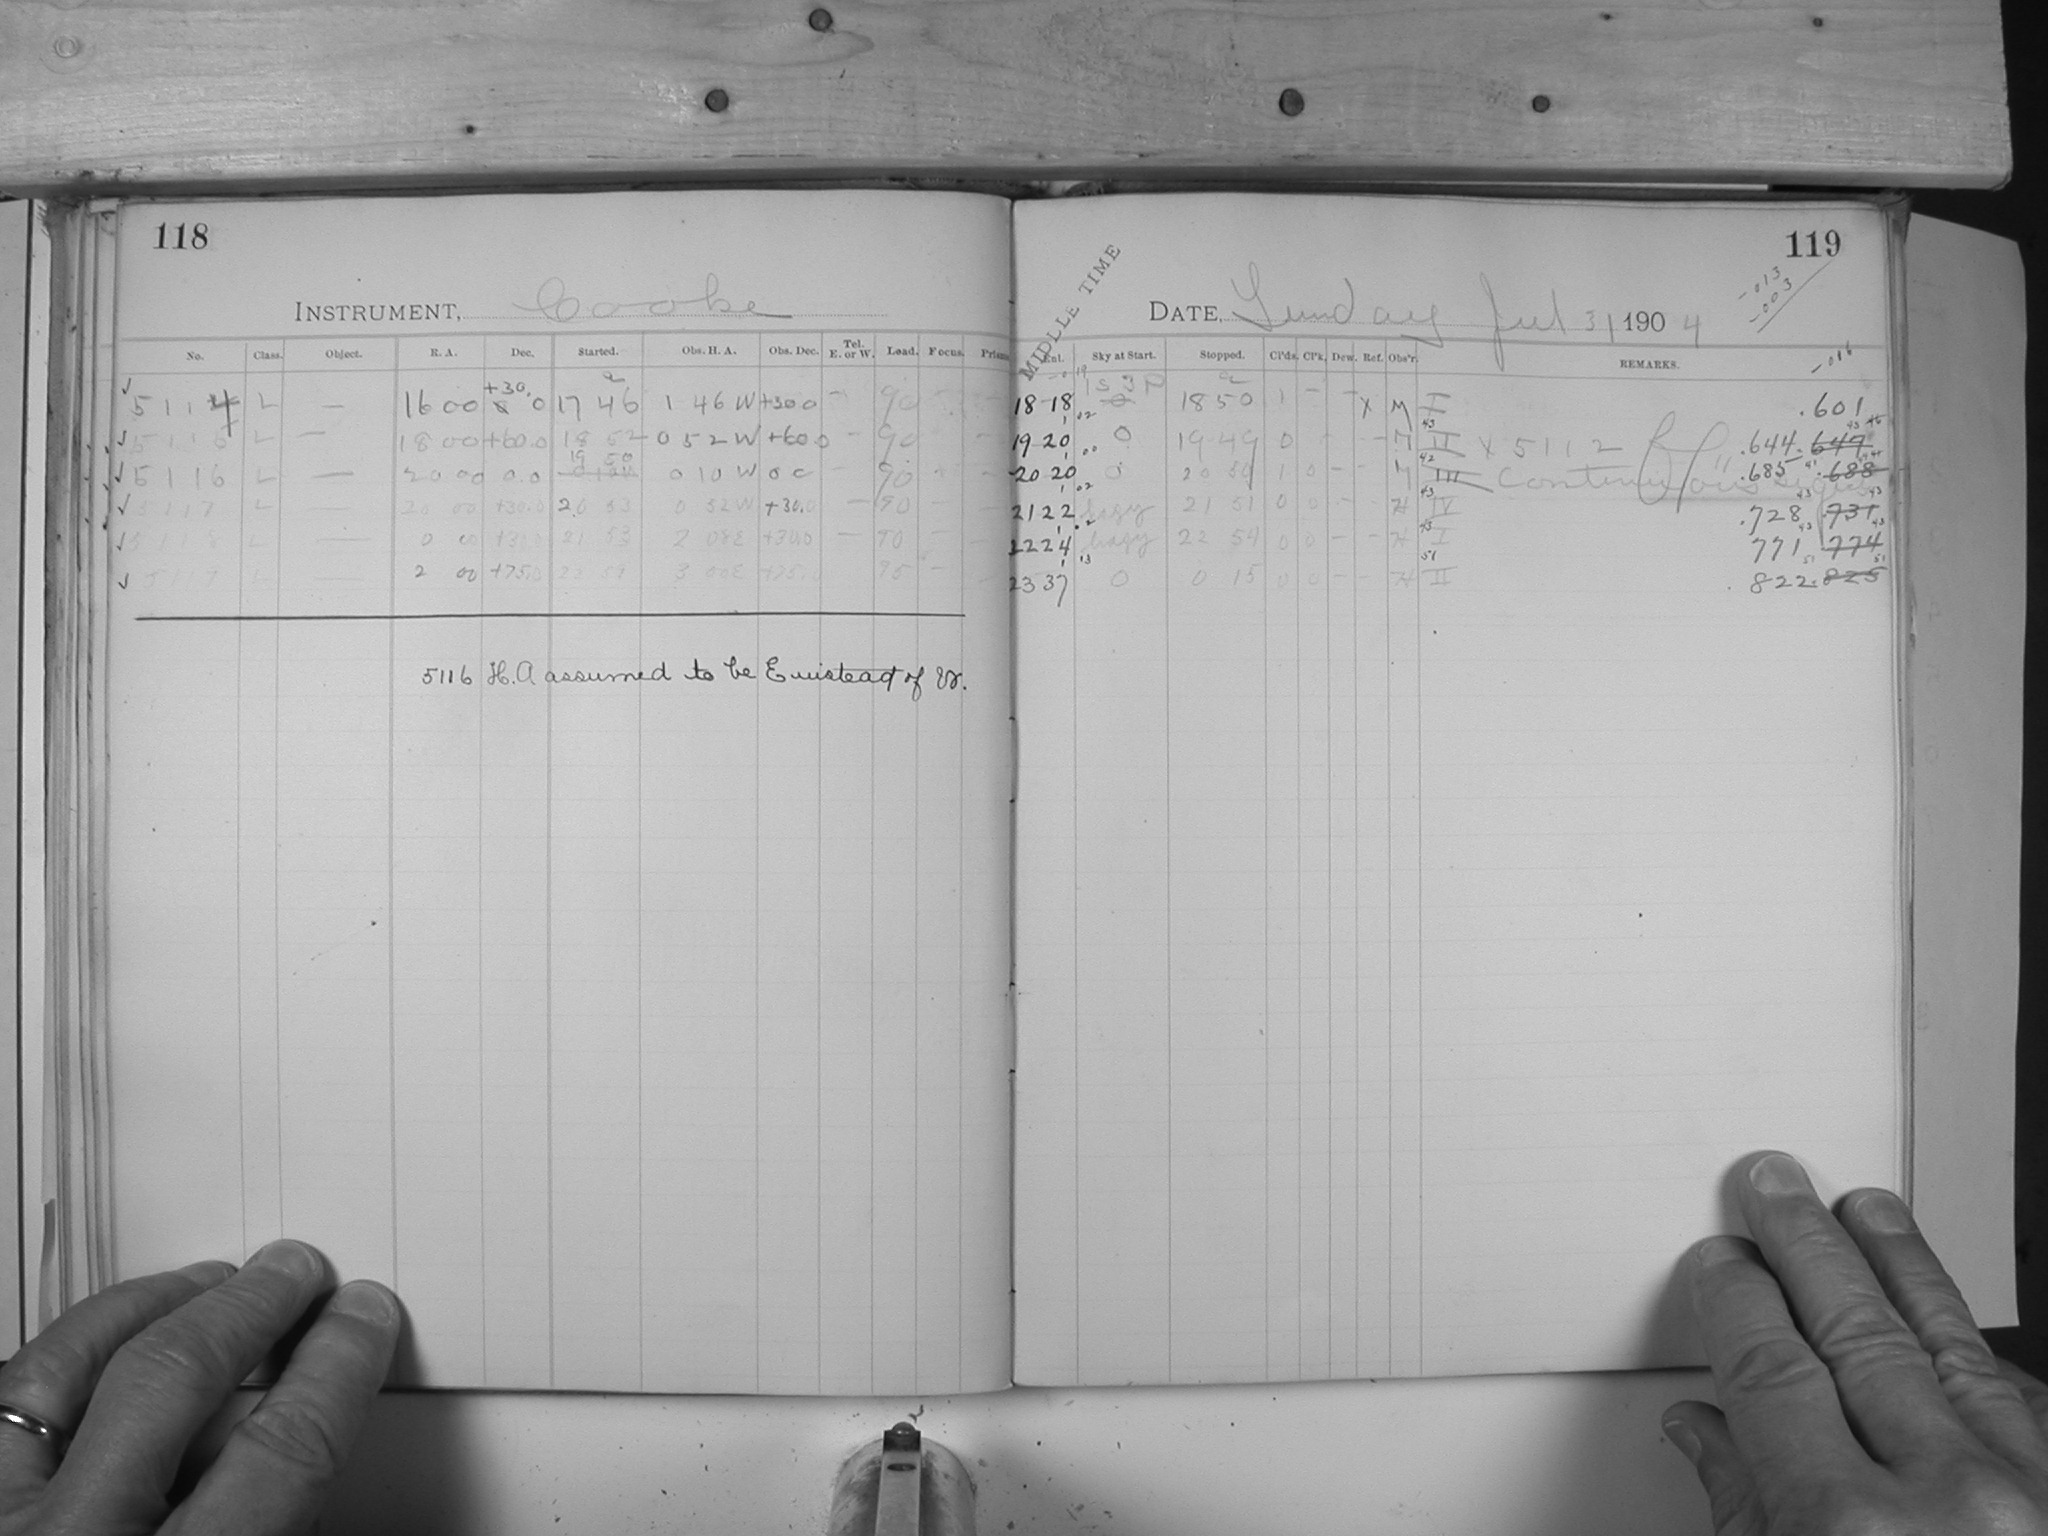 118
INSTRUMENT, Cooke
No. Class. Object. R. A. Dec. Started. Obs. H. A. Obs. Dec. Tel. E. or W. Load. Focus. Prism
5114 L — 16 00 +30.0 17 46 1 46 W +30 0 — 90
L — 18 00 +60.0 18 52 0 52 W +60 0 — 90
5116 L — 20 00 0.0 19 50 0 10 W 0 0 90
5117 L — 20 00 +30.0 20 53 0 52 W +30.0 — 90
5118 L — 0 00 +30.0 21 53 2 08 E +30.0 — 90
L — 2 00 +75.0 3 00 E +75.0 90 —
5116 H.A assumed to be E instead of W.
119
MIDDLE TIME
DATE, Sunday Jul 31 1904
-.013
-.003
-.016
Enl. Sky at Start. Stopped. Cl'ds. Cl'k. Dew. Ref. Obs'r. REMARKS.
18 18 0 18 50 1 — — X M I .601
19 20 0 19 49 0 - - - M II X 5112 .644 .647
20 20 0 20 50 1 0 - - M III Continuous .685 .688
21 22 hazy 21 51 0 0 - - H IV .728 .731
22 24 hazy 22 54 0 0 - - H I 771 .774
23 37 0 0 15 0 0 - - H II .822 .825